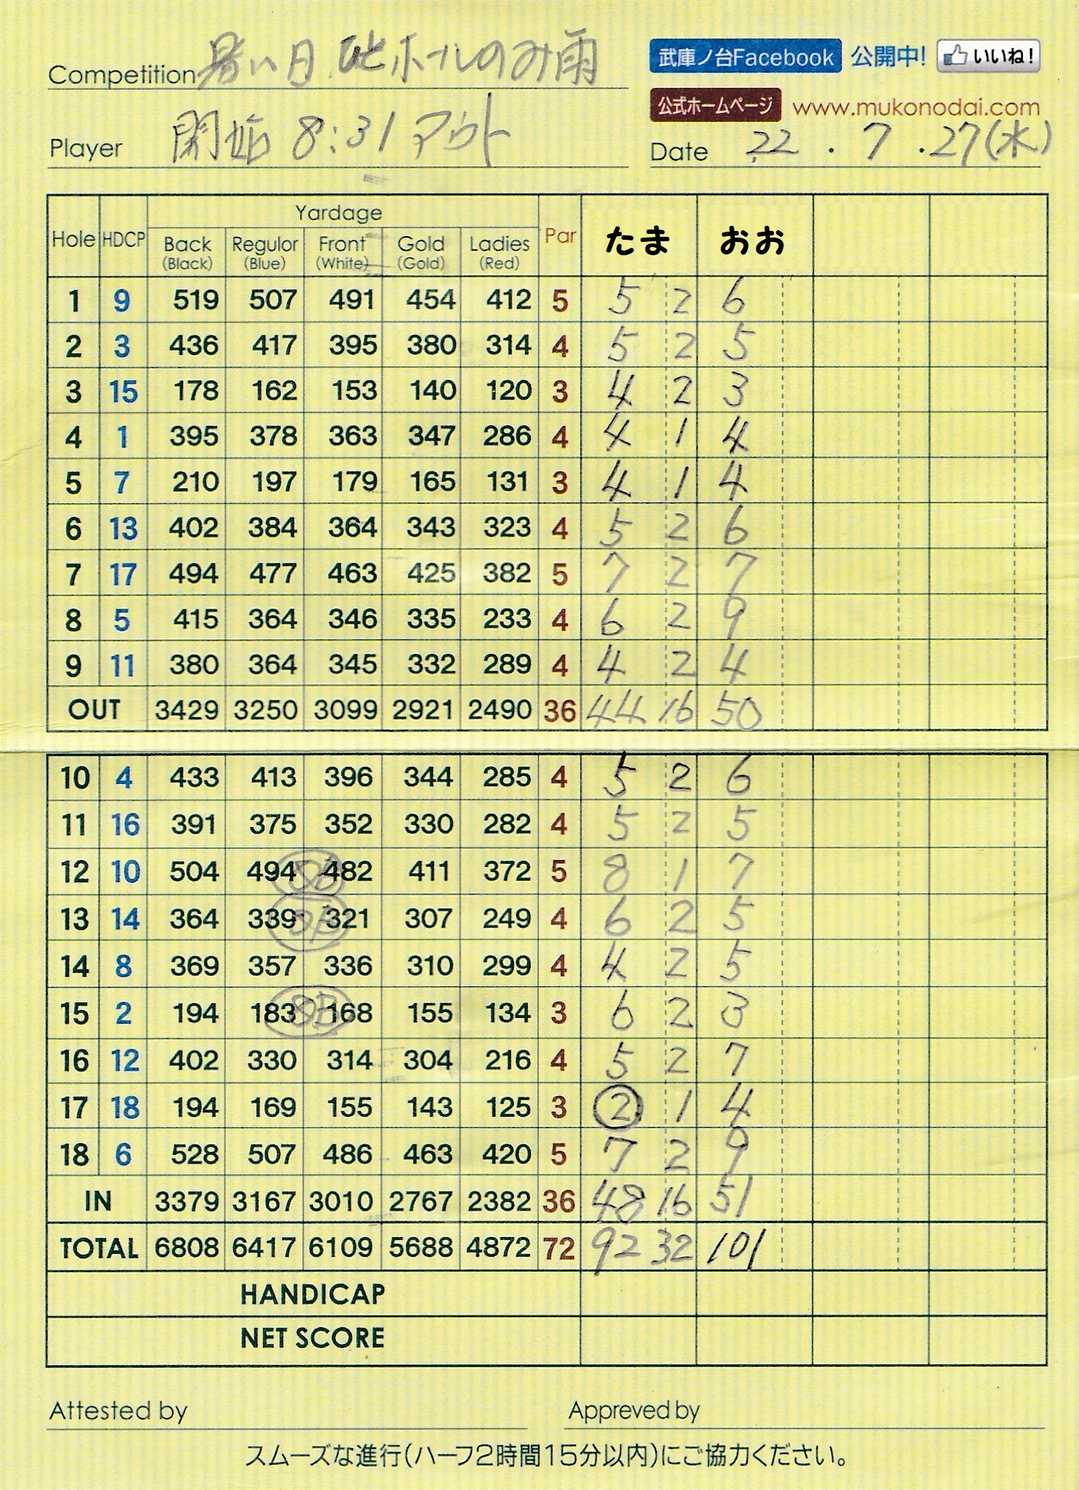 Competition 暑い日 ホールのみ雨
武庫ノ台Facebook 公開中! いいね!
公式ホームページ www.mukonodai.com
Player 開始 8:31 アウト
Date 22 . 7 . 27(水)
Hole HDCP Yardage Par たま おお
Back (Black) Regulor (Blue) Front (White) Gold (Gold) Ladies (Red)
1 9 519 507 491 454 412 5 5 2 6
2 3 436 417 395 380 314 4 5 2 5
3 15 178 162 153 140 120 3 4 2 3
4 1 395 378 363 347 286 4 4 1 4
5 7 210 197 179 165 131 3 4 1 4
6 13 402 384 364 343 323 4 5 2 6
7 17 494 477 463 425 382 5 7 2 7
8 5 415 364 346 335 233 4 6 2 9
9 11 380 364 345 332 289 4 4 2 4
OUT 3429 3250 3099 2921 2490 36 44 16 50
10 4 433 413 396 344 285 4 5 2 6
11 16 391 375 352 330 282 4 5 2 5
12 10 504 494 482 411 372 5 8 1 7
13 14 364 339 321 307 249 4 6 2 5
14 8 369 357 336 310 299 4 4 2 5
15 2 194 183 168 155 134 3 6 2 3
16 12 402 330 314 304 216 4 5 2 7
17 18 194 169 155 143 125 3 2 1 4
18 6 528 507 486 463 420 5 7 2 9
IN 3379 3167 3010 2767 2382 36 48 16 51
TOTAL 6808 6417 6109 5688 4872 72 92 32 101
HANDICAP
NET SCORE
Attested by
Appreved by
スムーズな進行(ハーフ2時間15分以内)にご協力ください。